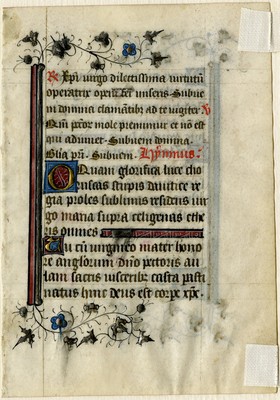 R. Xpi virgo dilectissima virtutū
operatrix opem fer miseris Subue
ni domina clamātibz ad te iugiter V
Nam pctor mole premimur et nō est
qui adiuuet. Subueni domina.
Glia pri. Subueni. Hymnus:
O Quam glorifica luce cho
ruscas stirpis dauitice re
gia proles sublimis residens uir
go maria supra celigenas ethe
ris omnes
Tu cū virgineo mater hono
re anglorum dño pectoris au
lam sacris visceribz casta
hinc deus est corpe xps.